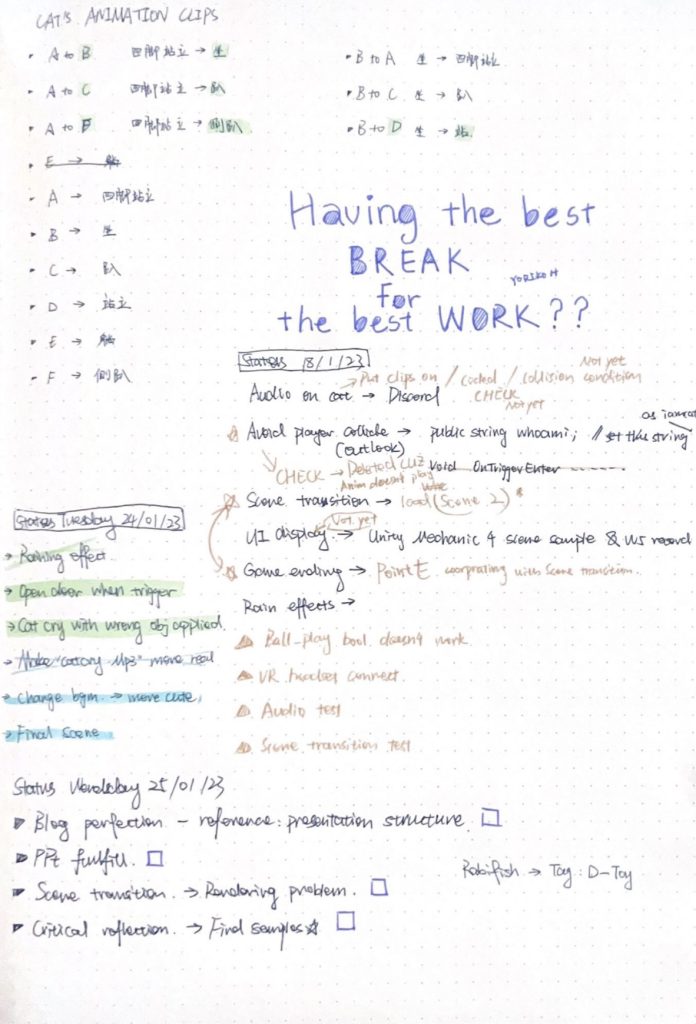 CAT'S ANIMATION CLIPS
• A to B 四脚站立 → 坐
• A to C 四脚站立 → 趴
• A to F 四脚站立 → 侧趴
• E → 躺
• A → 四脚站立
• B → 坐
• C → 趴
• D → 站立
• E → 躺
• F → 侧趴
• B to A 坐 → 四脚站立
• B to C 坐 → 趴
• B to D 坐 → 站
Having the best
BREAK
YORIKO H
for
the best WORK??
Status 18/1/23
Not yet
→ Put clips on / / Collision condition
Audio on cat → Discord
CHECK
Not yet
as iamcat
Avoid player collide → public string whoami; // set the string
(outlook)
CHECK → Deleted cuz void OnTriggerEnter
Anim doesn't play
Scene transition → load (Scene 2) *
Not yet
UI display → Unity Mechanic 4 scene sample & W5 record
Game ending → Point E with scene transition.
Rain effects →
Ball-play bool doesn't work
VR headset connect.
Audio test
Scene transition test
Status Tuesday 24/01/23
→ Raining effect
→ Open door when trigger
→ Cat cry with wrong obj applied.
→ Make "catcry Mp3" more real
→ Change bgm. → more cute.
→ Final Scene
Status Wendsday 25/01/23
▶ Blog perfection - reference: presentation structure. □
▶ PPt fulfill. □
▶ Scene transition. → Rendering problem. □
▶ Critical reflection. → Find samples☆ □
Robifish → Toy: D-Toy